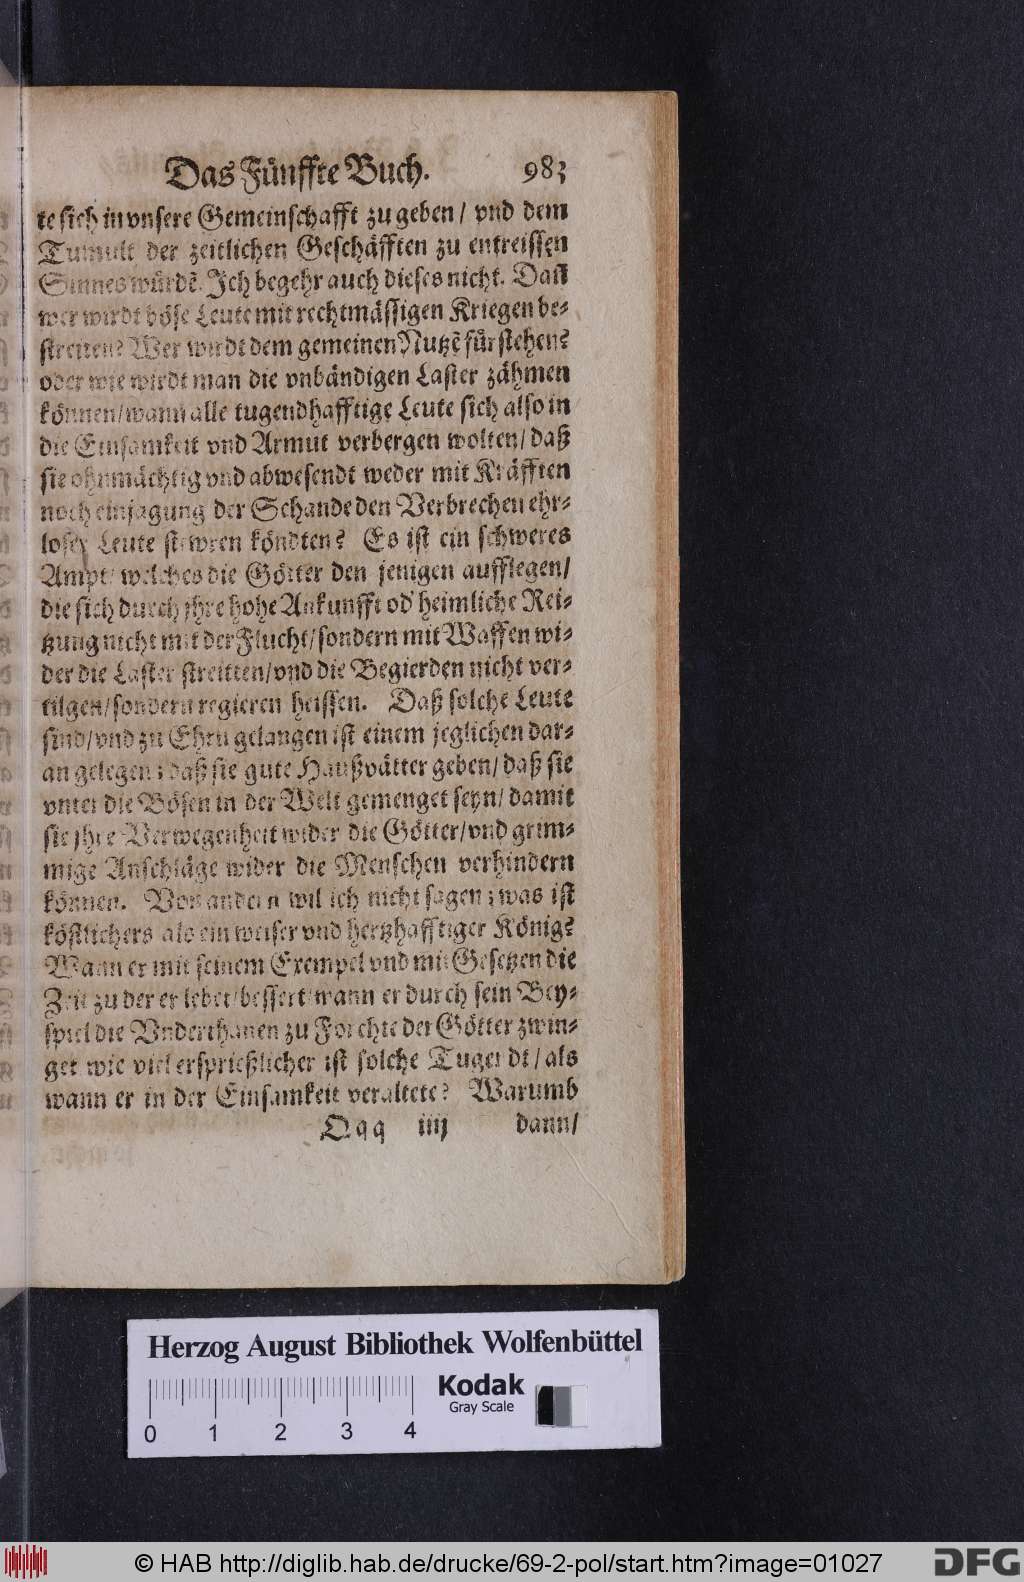 Das Fünffte Buch. 983
te sich in vnsere Gemeinschafft zu geben / vnd dem
Tumult der zeitlichen Geschäfften zu entreissen
Sinnes würdẽ. Jch begehr auch dieses nicht. Dañ
wer wirdt böse Leute mit rechtmässigen Kriegen be-
streiten? Wer wirdt dem gemeinen Nutzẽ fürstehen?
oder wie wirdt man die vnbändigen Laster zähmen
können / wann alle tugendhafftige Leute sich also in
die Einsamkeit vnd Armut verbergen wolten / daß
sie ohnmächtig vnd abwesendt weder mit Kräfften
noch einjagung der Schande den Verbrechen ehr-
loser Leute stewren köndten? Es ist ein schweres
Ampt / welches die Götter den jenigen aufflegen /
die sich durch jhre hohe Ankunfft od' heimliche Rei-
tzung nicht mit der Flucht / sondern mit Waffen wi-
der die Laster streitten / vnd die Begierden nicht ver-
tilgen / sondern regieren heissen. Daß solche Leute
sind / vnd zu Ehrn gelangen ist einem jeglichen dar-
an gelegen ; daß sie gute Haußvätter geben / daß sie
vnter die Bösen in der Welt gemenget seyn / damit
sie jhre Verwegenheit wider die Götter / vnd grim-
mige Anschläge wider die Menschen verhindern
können. Von andern wil ich nicht sagen ; was ist
köstlichers als ein weiser vnd hertzhafftiger König?
Wann er mit seinem Exempel vnd mit Gesetzen die
Zeit zu der er lebet / bessert / wann er durch sein Bey-
spiel die Vnderthanen zu Forchte der Götter zwin-
get wie viel ersprießlicher ist solche Tugendt / als
wann er in der Einsamkeit veraltete? Warumb
Qqq iiij dann /
Herzog August Bibliothek Wolfenbüttel
Kodak
Gray Scale
0 1 2 3 4
© HAB http://diglib.hab.de/drucke/69-2-pol/start.htm?image=01027
DFG